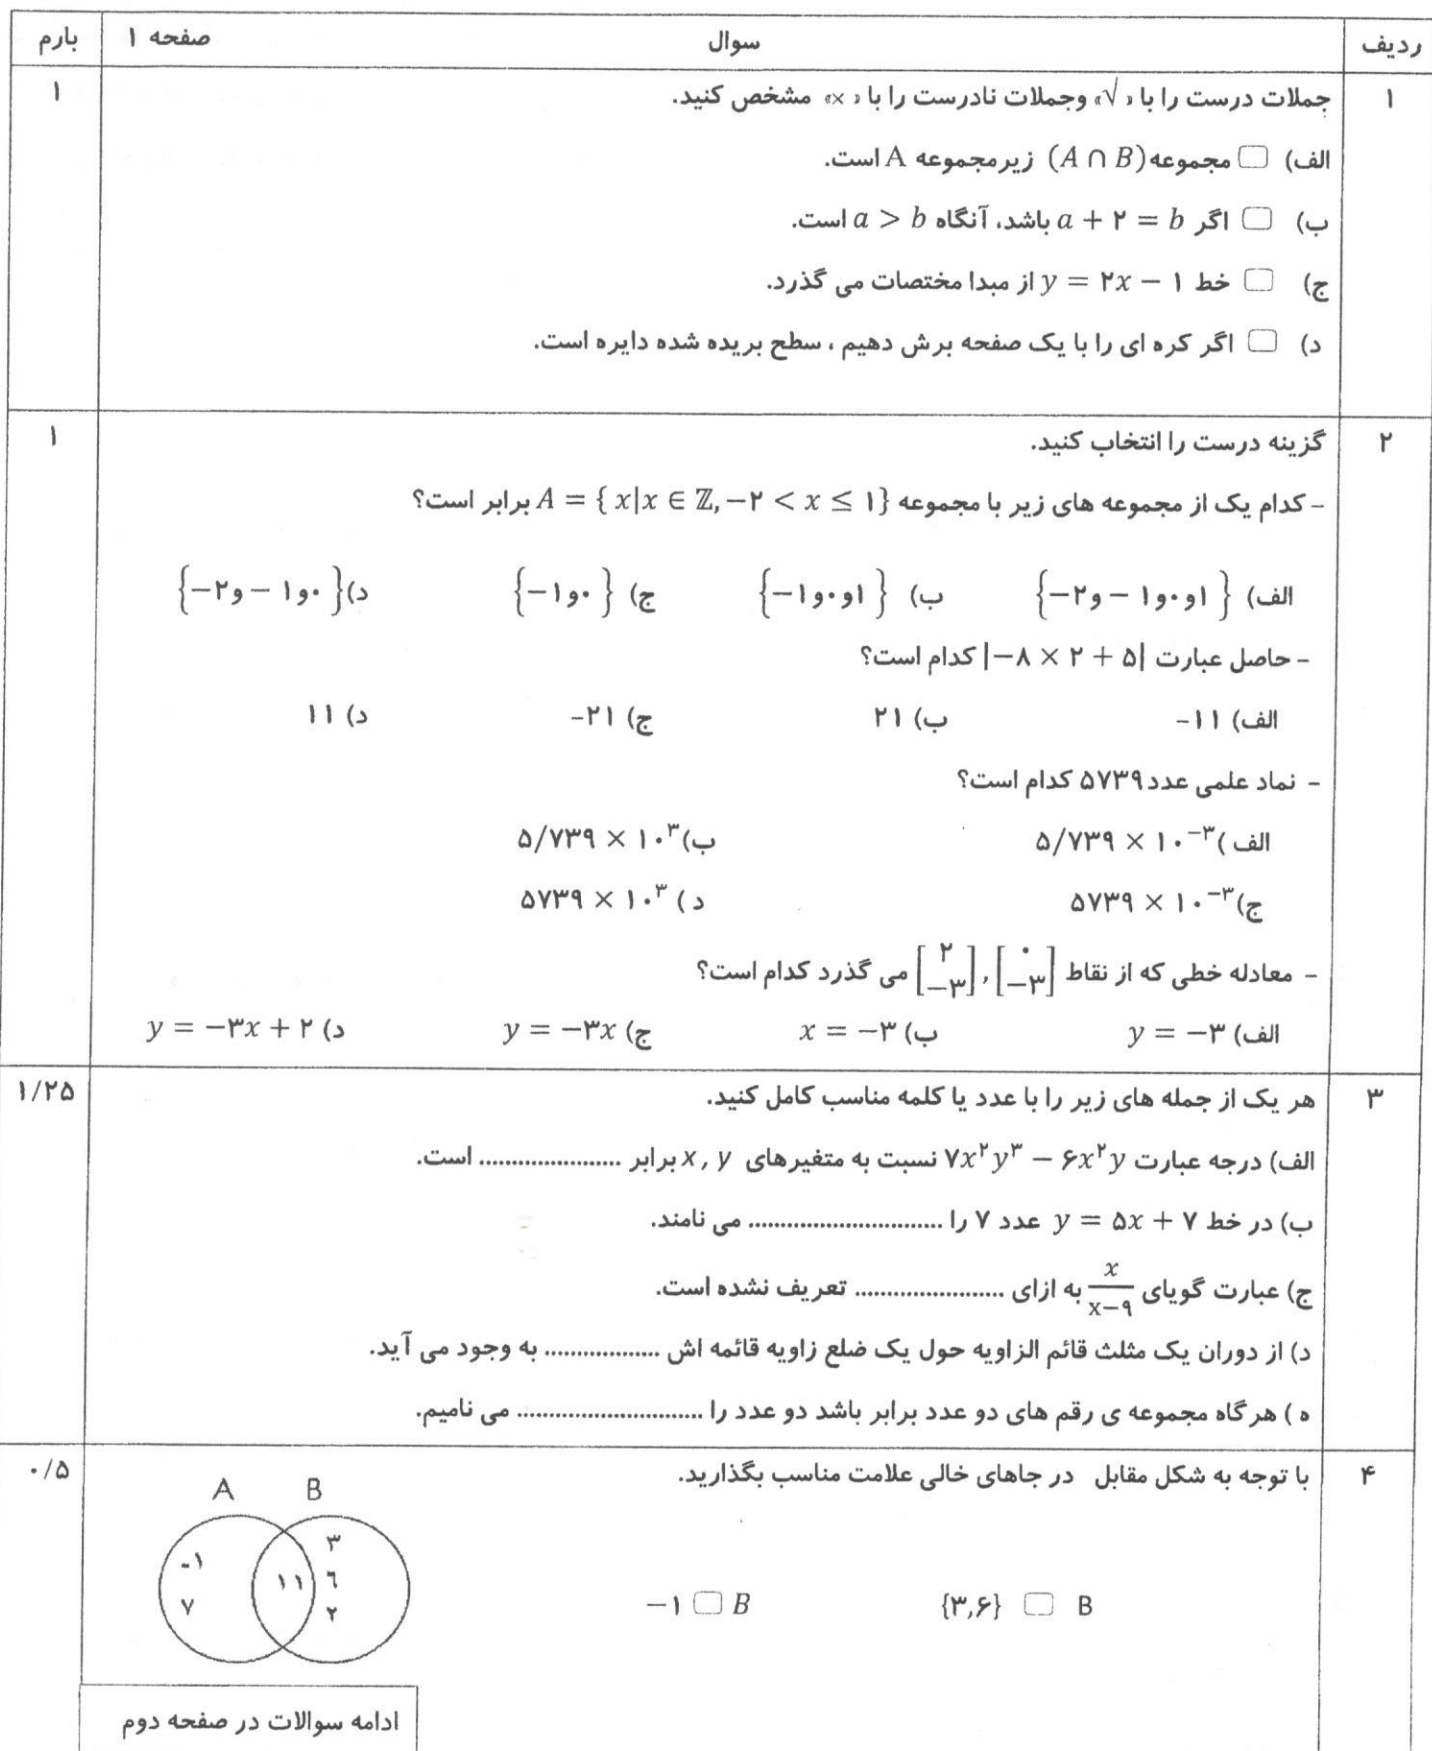 ردیف سوال صفحه ۱ بارم
۱ جملات درست را با « √» وجملات نادرست را با « ×» مشخص کنید. ۱
الف) ▢ مجموعه (A ∩ B) زیرمجموعه A است.
ب) ▢ اگر a + ۲ = b باشد، آنگاه a > b است.
ج) ▢ خط y = ۲x − ۱ از مبدا مختصات می گذرد.
د) ▢ اگر کره ای را با یک صفحه برش دهیم ، سطح بریده شده دایره است.
۲ گزینه درست را انتخاب کنید. ۱
- کدام یک از مجموعه های زیر با مجموعه A = { x|x ∈ ℤ, −۲ < x ≤ ۱} برابر است؟
الف) {−۲و − ۱و۰و۱} ب) {−۱و۰و۱} ج) {−۱و۰} د) {−۲و − ۱و۰}
- حاصل عبارت |−۸ × ۲ + ۵| کدام است؟
الف) -۱۱ ب) ۲۱ ج) -۲۱ د) ۱۱
- نماد علمی عدد ۵۷۳۹ کدام است؟
الف) ۵/۷۳۹ × ۱۰⁻³ ب) ۵/۷۳۹ × ۱۰³
ج) ۵۷۳۹ × ۱۰⁻³ د) ۵۷۳۹ × ۱۰³
- معادله خطی که از نقاط [۰ −۳] , [۲ −۳] می گذرد کدام است؟
الف) y = −۳ ب) x = −۳ ج) y = −۳x د) y = −۳x + ۲
۳ هر یک از جمله های زیر را با عدد یا کلمه مناسب کامل کنید. ۱/۲۵
الف) درجه عبارت ۷x²y³ − ۶x²y نسبت به متغیرهای x , y برابر ...................... است.
ب) در خط y = ۵x + ۷ عدد ۷ را .............................. می نامند.
ج) عبارت گویای x/(x−۹) به ازای ....................... تعریف نشده است.
د) از دوران یک مثلث قائم الزاویه حول یک ضلع زاویه قائمه اش .................. به وجود می آید.
ه ) هرگاه مجموعه ی رقم های دو عدد برابر باشد دو عدد را ............................. می نامیم.
۴ با توجه به شکل مقابل در جاهای خالی علامت مناسب بگذارید. ۰/۵
A B
{۳,۶} ▢ B −۱ ▢ B
-۱ ۷ ۱۱ ۳ ٦ ۲
ادامه سوالات در صفحه دوم